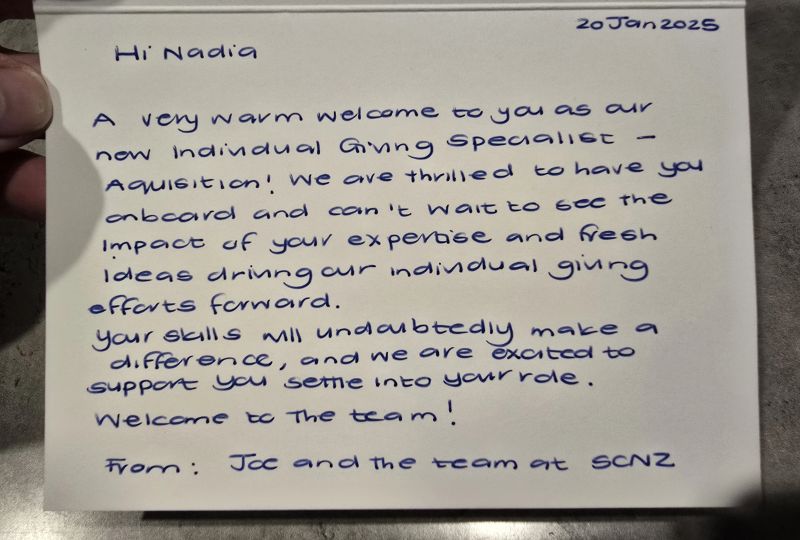 20 Jan 2025
Hi Nadia
A very warm welcome to you as our
new Individual Giving Specialist –
Aquisition! We are thrilled to have you
onboard and can't wait to see the
impact of your expertise and fresh
ideas driving our individual giving
efforts forward.
Your skills will undoubtedly make a
difference, and we are excited to
support you settle into your role.
Welcome to the team!
From: Joe and the team at SCNZ